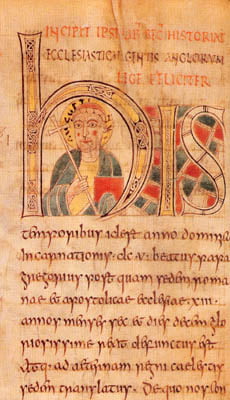 INCIPIT IPSIUS
ECCLESIASTICAE GENTIS ANGLORUM
LIBER FELICITER
HIS
temporibus id est anno dominicae
incarnationis dc v beatus papa
gregorius post quam sedem roma
nae et apostolicae ecclesiae xiii
annos menses sex et dies decem glo
riosissime rexit defunctus est
atque ad aeternam regni caelestis
sedem translatus De quo nos con